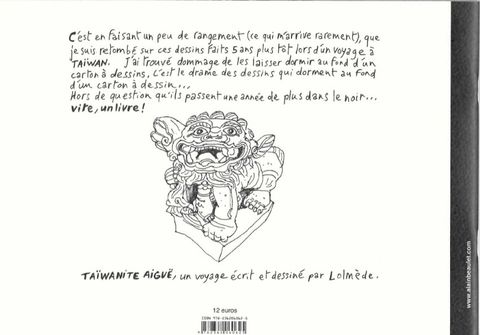 C'est en faisant un peu de rangement (ce qui m'arrive rarement), que
je suis retombé sur ces dessins faits 5 ans plus tôt lors d'un voyage à
TAÏWAN. J'ai trouvé dommage de les laisser dormir au fond d'un
carton à dessins, c'est le drame des dessins qui dorment au fond
d'un carton à dessin...
Hors de question qu'ils passent une année de plus dans le noir...
vite, un livre!
TAÏWANITE AIGUË, un voyage écrit et dessiné par Lolmède.
www.alainbeaulet.com
12 euros